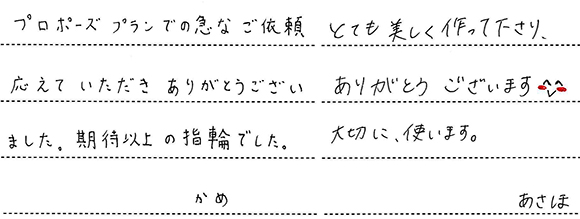 プロポーズプランでの急なご依頼
応えていただきありがとうござい
ました。期待以上の指輪でした。
かめ
とても美しく作って下さり、
ありがとうございます
大切に、使います。
あさほ